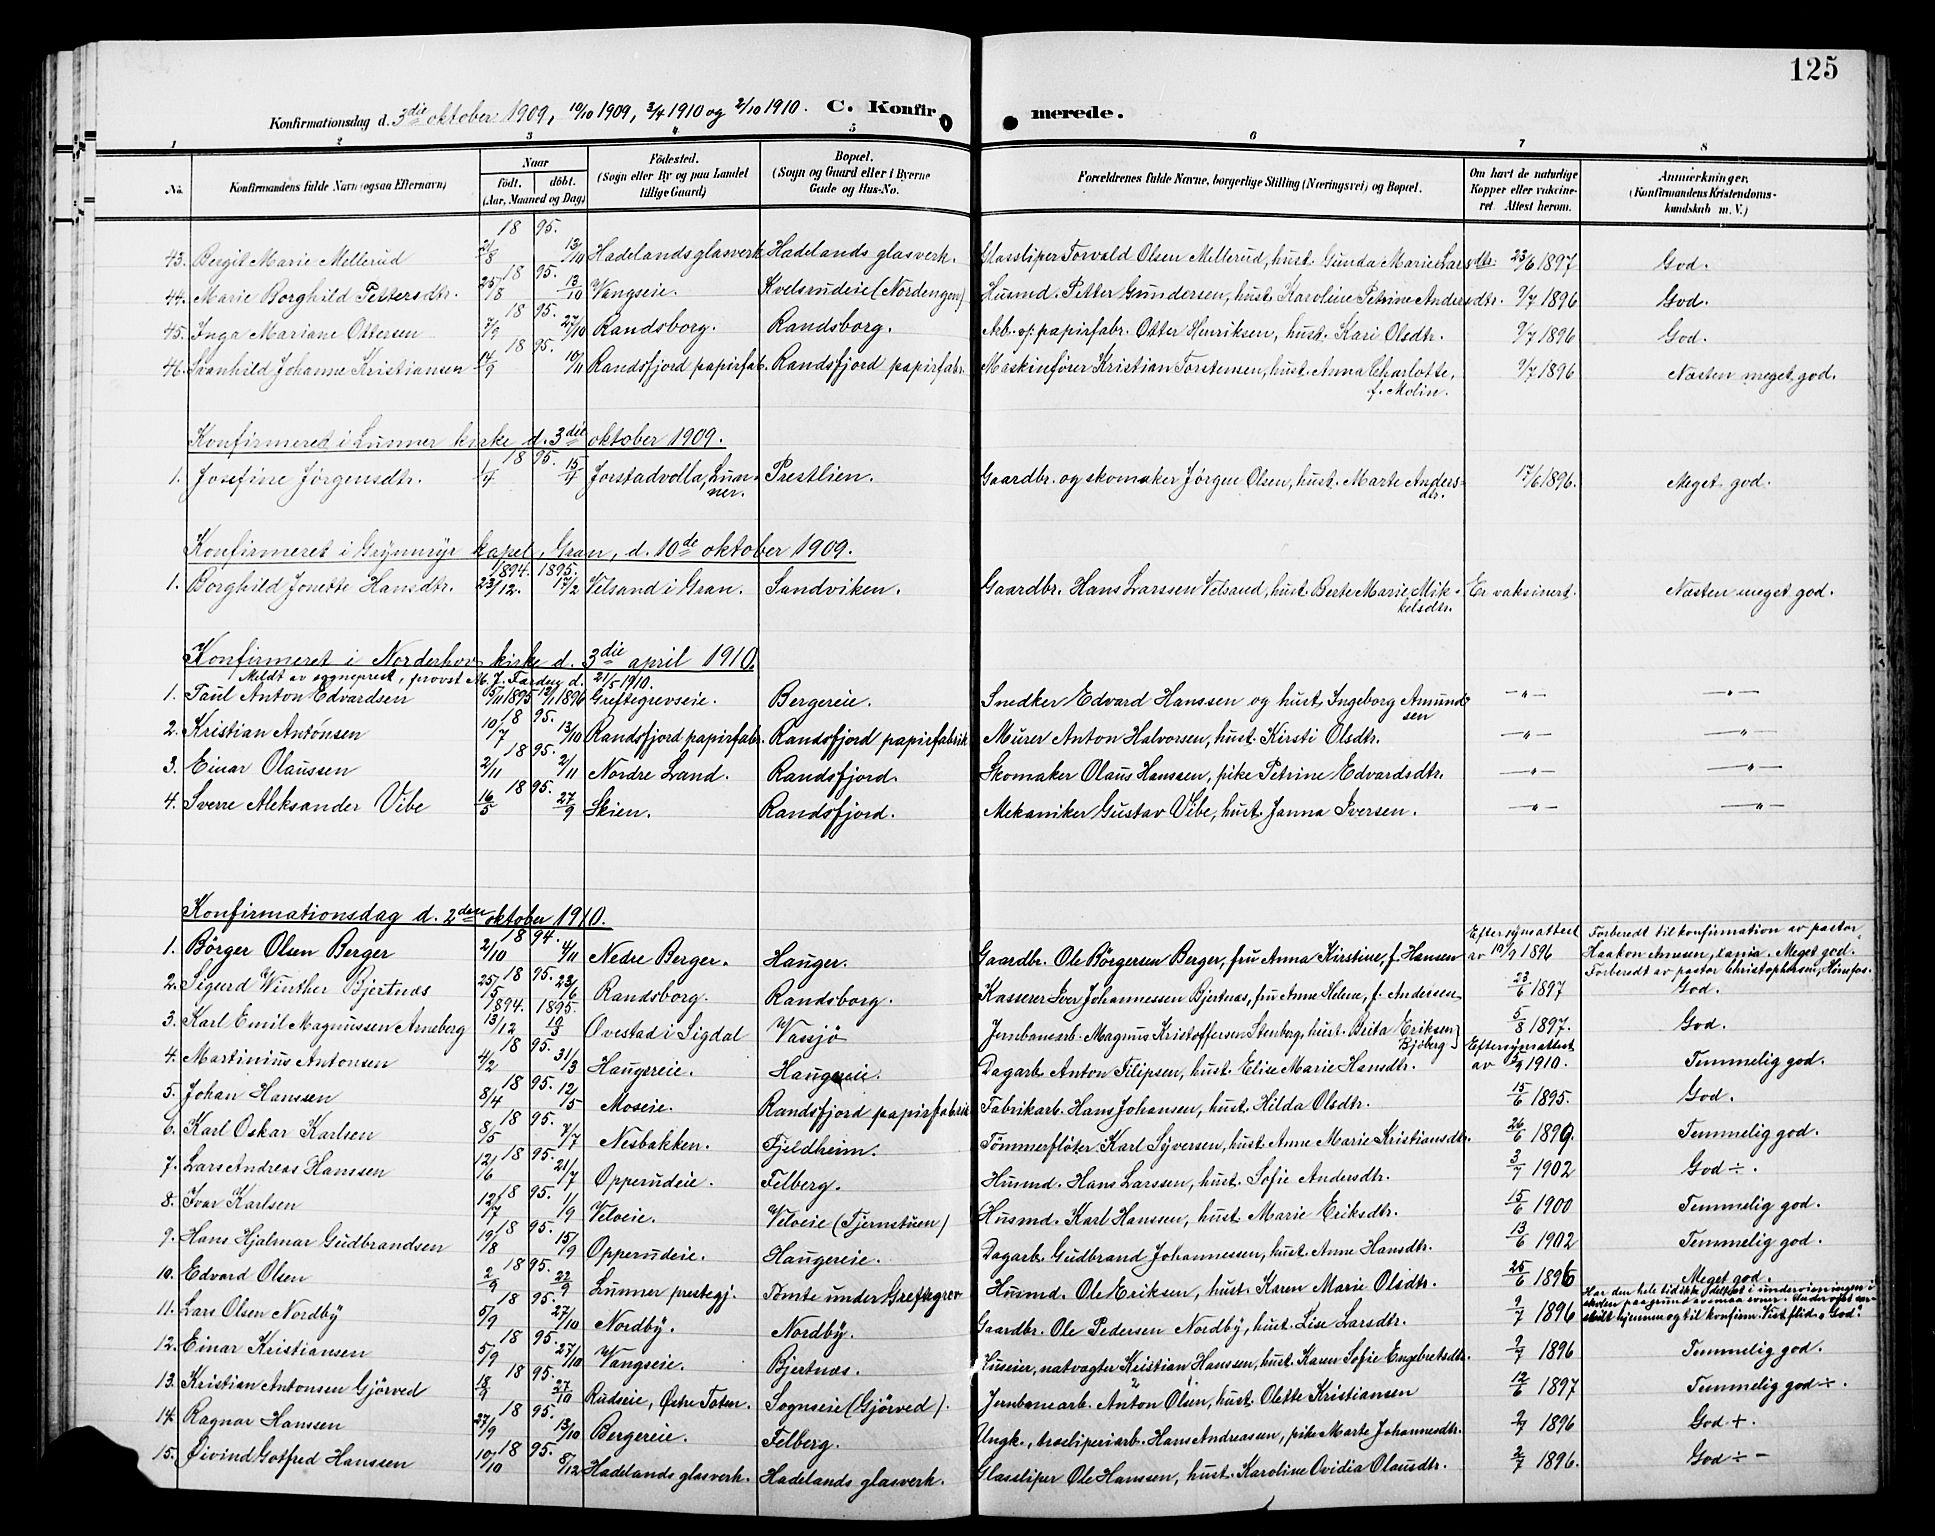 125
Konfirmationsdag d. 3die oktober 1909, 10/10 1909, 3/4 1910 og 2/10 1910. C. Konfirmerede.
1 2 3 4 5 6 7 8
No. Konfirmandens fulde Navn (ogsaa Efternavn) Naar födt. döbt. (Aar, Maaned og Dag) Födested. (Sogn eller By og paa Landet tillige Gaard) Bopæl. (Sogn og Gaard eller i Byerne Gade og Hus-No. Forældrenes fulde Navne, borgerlige Stilling (Næringsvei) og Bopæl. Om havt de naturlige Kopper eller vaksineret. Attest herom. Anmerkninger. (Konfirmandens Kristendomskundskab m. V.)
43. Bergit Marie Mellerud 21/8 1895. 13/10 Hadelands glasverk Hadelands glasverk. Glassliper Torvald Olsen Mellerud, hust. Gunda Marie Larsdtr. 23/6 1897 God.
44. Marie Borghild Pettersdtr. 25/8 1895. 13/10 Vangseie. Kvelsrudeie (Nordengen) Husmd. Petter Gundersen, hust. Karoline Petrine Andersdtr. 9/7 1896 God.
45. Inga Mariane Ottersen 7/9 1895. 27/10 Randsborg. Randsborg. Arb. v/ papirfabr. Otter Henriksen, hust. Kari Olsdtr. 9/7 1896 God.
46. Svanhild Johanne Kristiansen 14/9 1895. 10/11 Randsfjord papirfab. Randsfjord papirfabr. Maskinfører Kristian Torstensen, hust. Anna Charlotte, f. Molin. 9/7 1896 Næsten meget god.
Konfirmeret i Lunner kirke d. 3die oktober 1909.
1. Josefine Jørgensdtr. 1/4 1895. 15/4 Jorstadvolla, Lunner. Prestlien. Gaardbr. og skomaker Jørgen Olsen, hust. Marte Andersdtr. 17/6 1896. Meget god.
Konfirmeret i Grymyr kapel, Gran, d. 10de oktober 1909.
1. Borghild Jonette Hansdtr. 1894. 23/12. 1895. 17/2 Velsand i Gran. Sandviken. Gaardbr. Hans Larssen Velsand, hust. Berte Marie Mikkelsdtr. Er vaksinert. Næsten meget god.
Konfirmeret i Norderhov kirke d. 3die april 1910.
Meldt av sogneprest, provst M. J. Færden d. 21/5 1910.
1. Paul Anton Edvardsen 15/11 1895 12/1 1896 Greftegrevseie. Bergereie. Snedker Edvard Hanssen og hust. Ingeborg Amundsen —"— —"—
2. Kristian Antonsen 10/7 1895. 13/10 Randsfjord papirfabr. Randsfjord papirfabrik Murer Anton Halvorsen, hust. Kirsti Olsdtr. —"— —"—
3. Einar Olaussen 2/11 1895. 2/11 Nordre Land. Randsfjord. Skomaker Olaus Hanssen, pike Petrine Edvardsdtr. —"— —"—
4. Sverre Aleksander Vibe 16/5 1895. 27/9 Skien. Randsfjord. Mekaniker Gustav Vibe, hust. Janna Iversen. —"— —"—
Konfirmationsdag d. 2den oktober 1910.
1. Börger Olsen Berger 2/10 1894. 4/11 Nedre Berger. Hauger. Gaardbr. Ole Börgersen Berger, fru Anna Kirstine, f. Hansen Efter synsattest av 19/9 1896 Forberedt til konfirmation av pastor Haakon Anusen, Meget god.
2. Sigurd Winther Bjertnæs 25/5 1895. 23/6 Randsborg. Randsborg. Kasserer Iver Johannessen Bjertnæs, fru Anne Helene, f. Andersen 23/6 1897 Forberedt av pastor Christophersen, Hönefos. God.
3. Karl Emil Magnussen Arneberg 1894. 13/12 1895. 10/3 Ovestad i Sigdal Vassjö Jernbanearb. Magnus Kristoffersen Stenberg, hust. Brita Eriksen Bjöberg 5/8 1897. God.
4. Martinius Antonsen 4/2 1895. 31/3 Haugereie. Haugereie. Dagarb. Anton Filipsen, hust. Elise Marie Hansdtr. Efter synsattest av 15/9 1910. Temmelig god.
5. Johan Hanssen 8/4 1895. 12/5 Moseie. Randsfjord papirfabrik Fabrikarb. Hans Johansen, hust. Hilda Olsdtr. 15/6 1895. God.
6. Karl Oskar Karlsen 8/5 1895. 7/7 Nesbakken. Fjeldheim. Tömmerflöter Karl Syversen, hust. Anne Marie Kristiansdtr. 26/6 1899. Temmelig god.
7. Lars Andreas Hanssen 12/6 1895. 21/7 Opperudeie. Felberg. Husmd. Hans Larssen, hust. Sofie Andersdtr. 3/7 1902 God ÷.
8. Ivar Karlsen 12/7 1895. 1/9 Velveie. Velveie (Tjernstuen) Husmd. Karl Hanssen, hust. Marie Eriksdtr. 15/6 1900 Temmelig god.
9. Hans Hjalmar Gudbrandsen 19/8 1895. 15/9 Opperudeie. Haugereie. Dagarb. Gudbrand Johannessen, hust. Anne Hansdtr. 13/6 1902 Temmelig god.
10. Edvard Olsen 2/9 1895. 22/9 Lunner prestegj. Tomte under Greftegrev Husmd. Ole Eriksen, hust. Karen Marie Olsdtr. 25/6 1896 Meget god.
11. Lars Olsen Nordby 5/9 1895. 27/10 Nordby. Nordby. Gaardbr. Ole Pedersen Nordby, hust. Lise Larsdtr. 9/7 1896 Har den hele tid ikke deltat i undervisningen i skolen paa grund av Undervist særskilt hjemme og til konfirm. Vist flid. „God".
12. Einar Kristiansen 5/9 1895. 27/10 Vangseie. Bjertnæs. Huseier, natvagter Kristian Hanssen, hust. Karen Sofie Engebretsdtr. 9/7 1896 Temmelig god.
13. Kristian Antonsen Gjörved 18/9 1895. 27/10 Rudseie, Østre Toten. Sognseie (Gjörved). Jernbanearb. Anton Olsen, hust. Olette Kristiansen 12/6 1897 Temmelig god ÷.
14. Ragnar Hanssen 27/9 1895. 13/10 Bergereie. Felberg. Ungk., træsliperiarb. Hans Andreasen, pike Marte Johannesdtr. 9/7 1896 God +.
15. Øivind Gotfred Hanssen 10/10 1895. 8/12 Hadelands glasverk. Hadelands glasverk. Glassliper Ole Hanssen, hust. Karoline Ovidia Olausdtr. 2/7 1896. God ÷ -